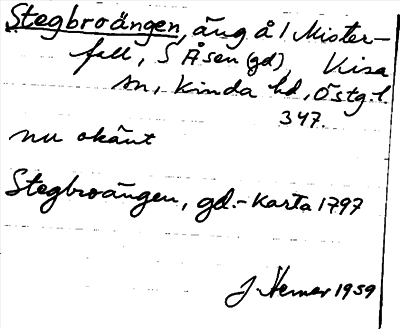 Stegbroängen, äng å 1 Mister-
fall, S Åsen (gd), Kisa
sn, Kinda hd, Östg. l.
347.
nu okänt
Stegbroängen, gd. - Karta 1797
J. Nemer 1959